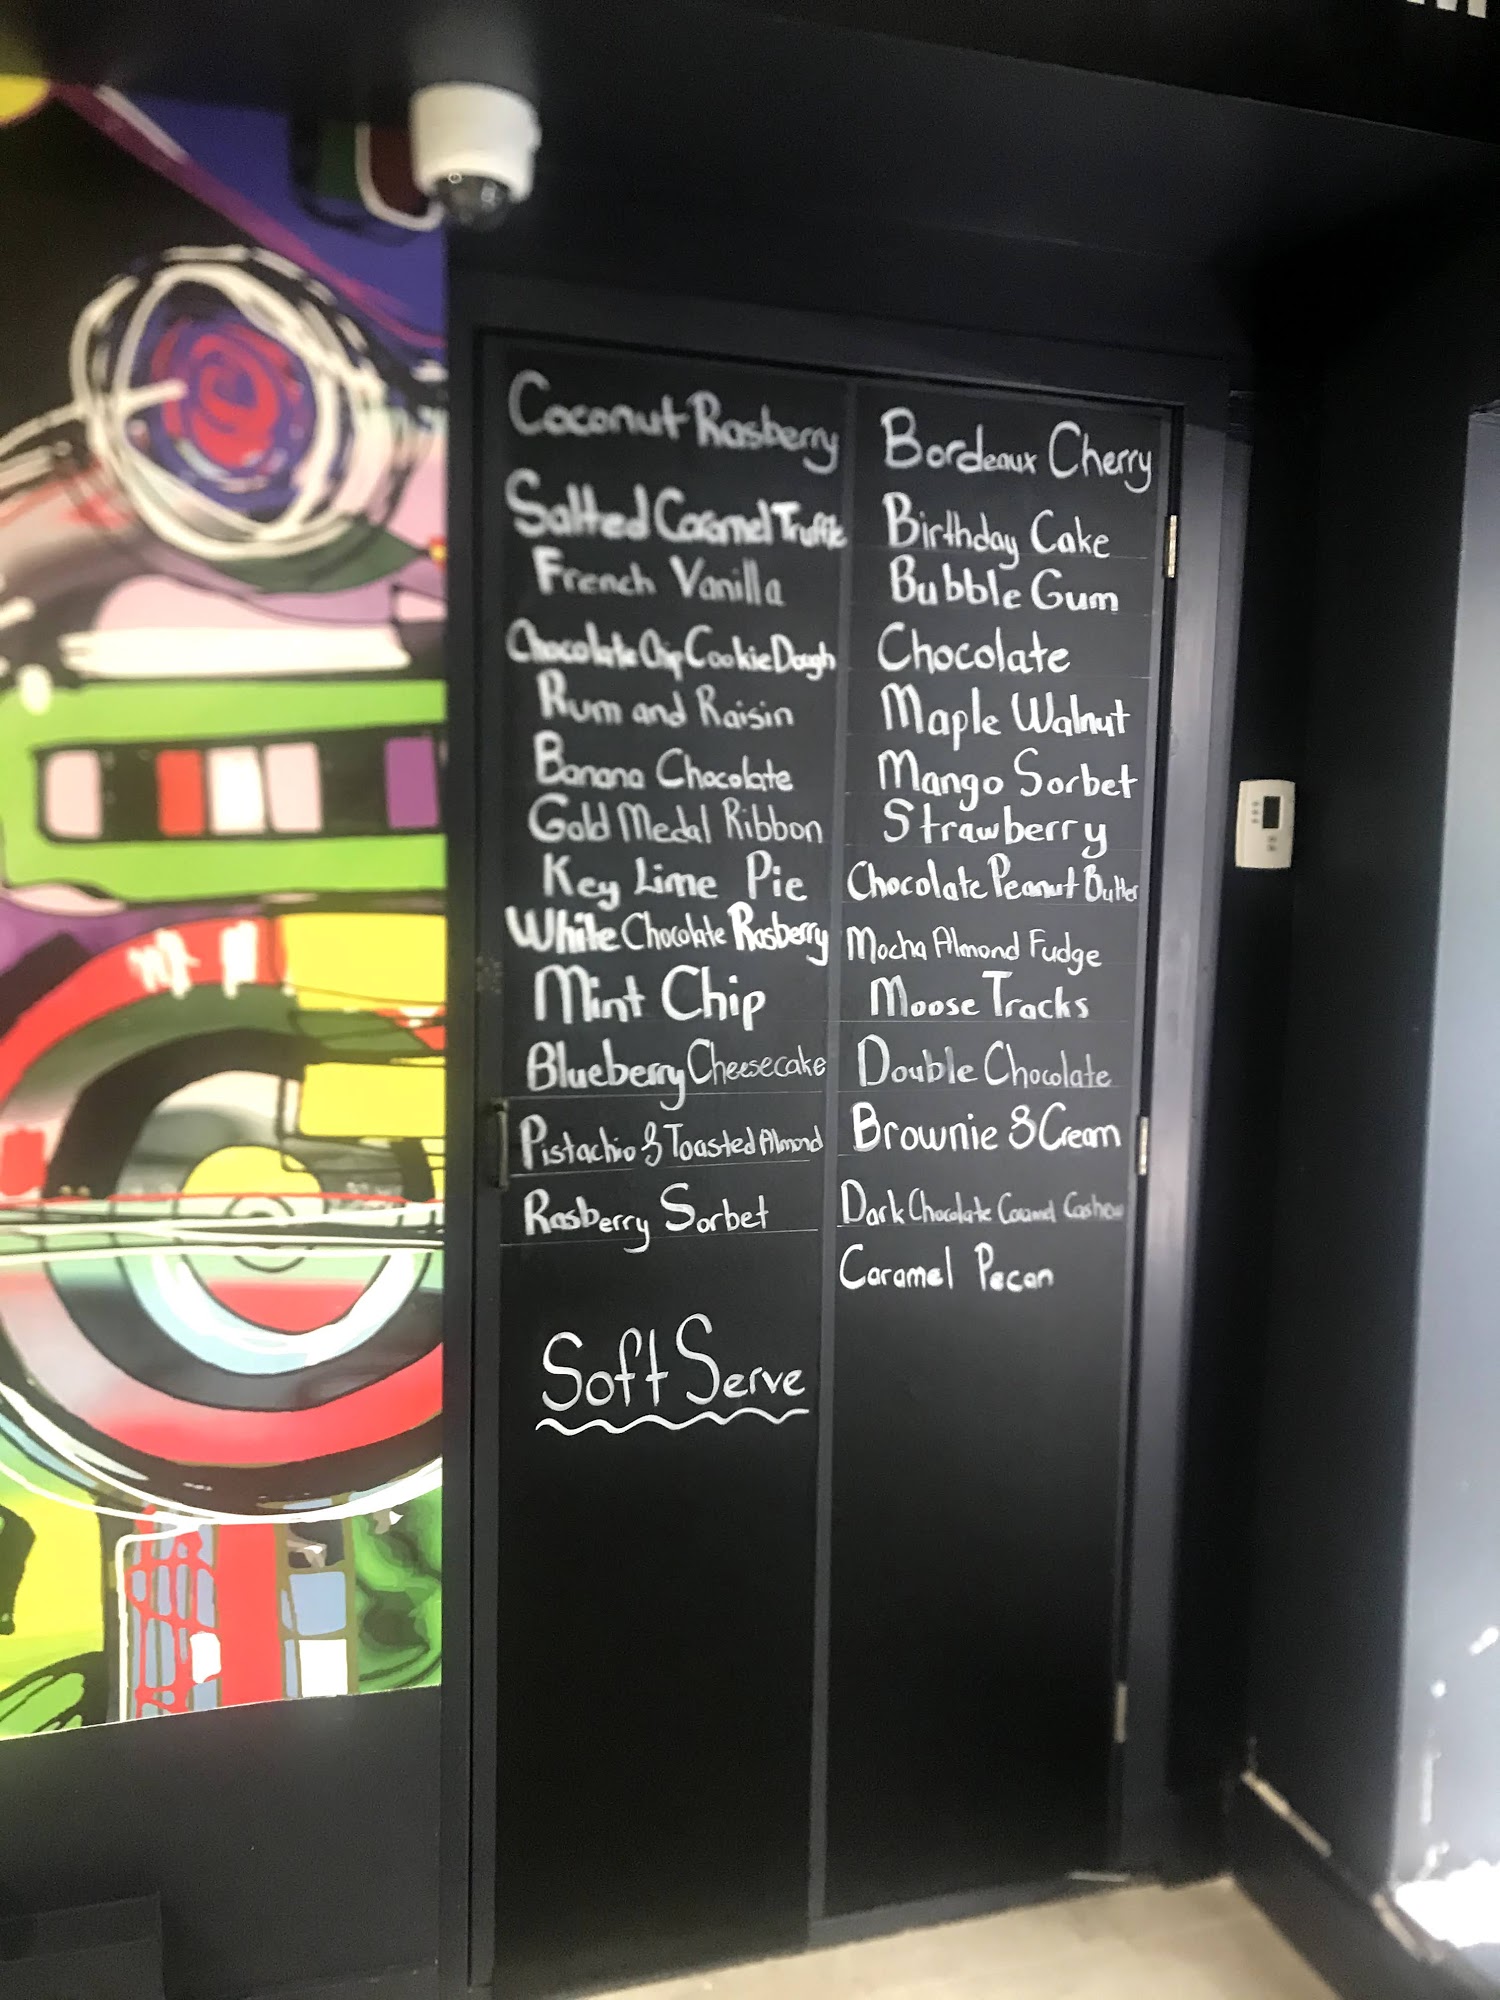 Coconut Rasberry
Salted Caramel Truffle
French Vanilla
Chocolate Chip Cookie Dough
Rum and Raisin
Banana Chocolate
Gold Medal Ribbon
Key Lime Pie
White Chocolate Rasberry
Mint Chip
Blueberry Cheesecake
Pistachio & Toasted Almond
Rasberry Sorbet
Soft Serve
Bordeaux Cherry
Birthday Cake
Bubble Gum
Chocolate
Maple Walnut
Mango Sorbet
Strawberry
Chocolate Peanut Butter
Mocha Almond Fudge
Moose Tracks
Double Chocolate
Brownie & Cream
Dark Chocolate Caramel Cashew
Caramel Pecan